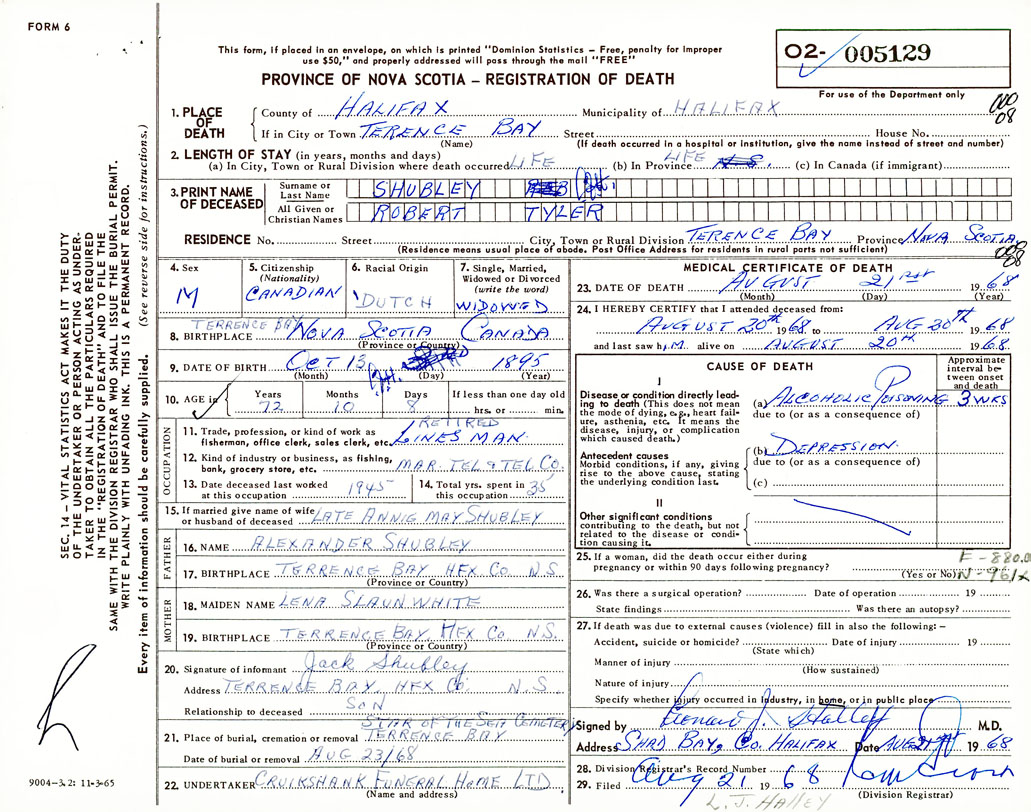 FORM 6
This form, if placed in an envelope, on which is printed "Dominion Statistics – Free, penalty for improper
use $50," and properly addressed will pass through the mail "FREE"
PROVINCE OF NOVA SCOTIA – REGISTRATION OF DEATH
02- 005129
For use of the Department only
1. PLACE OF DEATH
County of HALIFAX Municipality of HALIFAX
If in City or Town TERENCE BAY Street House No.
(Name) (If death occurred in a hospital or institution, give the name instead of street and number)
2. LENGTH OF STAY (in years, months and days)
(a) In City, Town or Rural Division where death occurred LIFE (b) In Province LIFE (c) In Canada (if immigrant)
3. PRINT NAME OF DECEASED
Surname or Last Name SHUBLEY
All Given or Christian Names ROBERT TYLER
RESIDENCE No. Street City, Town or Rural Division TERENCE BAY Province NOVA SCOTIA
(Residence means usual place of abode. Post Office Address for residents in rural parts not sufficient)
4. Sex M
5. Citizenship (Nationality) CANADIAN
6. Racial Origin DUTCH
7. Single, Married, Widowed or Divorced (write the word) WIDOWED
8. BIRTHPLACE TERRENCE BAY NOVA SCOTIA CANADA
(Province or Country)
9. DATE OF BIRTH OCT 13 1895
(Month) (Day) (Year)
10. AGE in Years 72 Months 10 Days 8 If less than one day old hrs. or min.
OCCUPATION
11. Trade, profession, or kind of work as fisherman, office clerk, sales clerk, etc. RETIRED LINESMAN
12. Kind of industry or business, as fishing, bank, grocery store, etc. MAR. TEL & TEL CO.
13. Date deceased last worked at this occupation 1945
14. Total yrs. spent in this occupation 35
15. If married give name of wife or husband of deceased LATE ANNIG MAY SHUBLEY
FATHER
16. NAME ALEXANDER SHUBLEY
17. BIRTHPLACE TERRENCE BAY HFX CO N.S.
(Province or Country)
MOTHER
18. MAIDEN NAME LENA SLAUNWHITE
19. BIRTHPLACE TERRENCE BAY, HFX CO. N.S.
(Province or Country)
20. Signature of informant Jack Shubley
Address TERRENCE BAY, HFX CO. N.S.
Relationship to deceased SON
STAR OF THE SEA CEMETERY
21. Place of burial, cremation or removal TERRENCE BAY
Date of burial or removal AUG 23/68
22. UNDERTAKER CRUIKSHANK FUNERAL HOME LTD
(Name and address)
MEDICAL CERTIFICATE OF DEATH
23. DATE OF DEATH AUGUST 21ST 1968
(Month) (Day) (Year)
24. I HEREBY CERTIFY that I attended deceased from:
AUGUST 20th 1968 to AUG 20th 1968
and last saw h IM alive on AUGUST 20th 1968
CAUSE OF DEATH
Approximate interval between onset and death
I
Disease or condition directly leading to death (This does not mean the mode of dying, e.g., heart failure, asthenia, etc. It means the disease, injury, or complication which caused death.)
(a) ALCOHOLIC POISONING 3 WKS
due to (or as a consequence of)
Antecedent causes
Morbid conditions, if any, giving rise to the above cause, stating the underlying condition last.
(b) DEPRESSION
due to (or as a consequence of)
(c)
II
Other significant conditions contributing to the death, but not related to the disease or condition causing it.
25. If a woman, did the death occur either during pregnancy or within 90 days following pregnancy?
(Yes or No)
26. Was there a surgical operation? Date of operation 19
State findings Was there an autopsy?
27. If death was due to external causes (violence) fill in also the following: –
Accident, suicide or homicide? Date of injury 19
(State which)
Manner of injury
(How sustained)
Nature of injury
Specify whether injury occurred in Industry, in home, or in public place
Signed by M.D.
Address SHAD BAY, CO. HALIFAX Date AUG 21 1968
28. Division Registrar's Record Number
29. Filed Aug 21 1968
(Division Registrar)
SEC. 14 – VITAL STATISTICS ACT MAKES IT THE DUTY
OF THE UNDERTAKER OR PERSON ACTING AS UNDER-
TAKER TO OBTAIN ALL THE PARTICULARS REQUIRED
IN THE "REGISTRATION OF DEATH" AND TO FILE THE
SAME WITH THE DIVISION REGISTRAR WHO SHALL ISSUE THE BURIAL PERMIT.
WRITE PLAINLY WITH UNFADING INK. THIS IS A PERMANENT RECORD.
Every item of information should be carefully supplied. (See reverse side for instructions.)
9004-3.2: 11-3-65